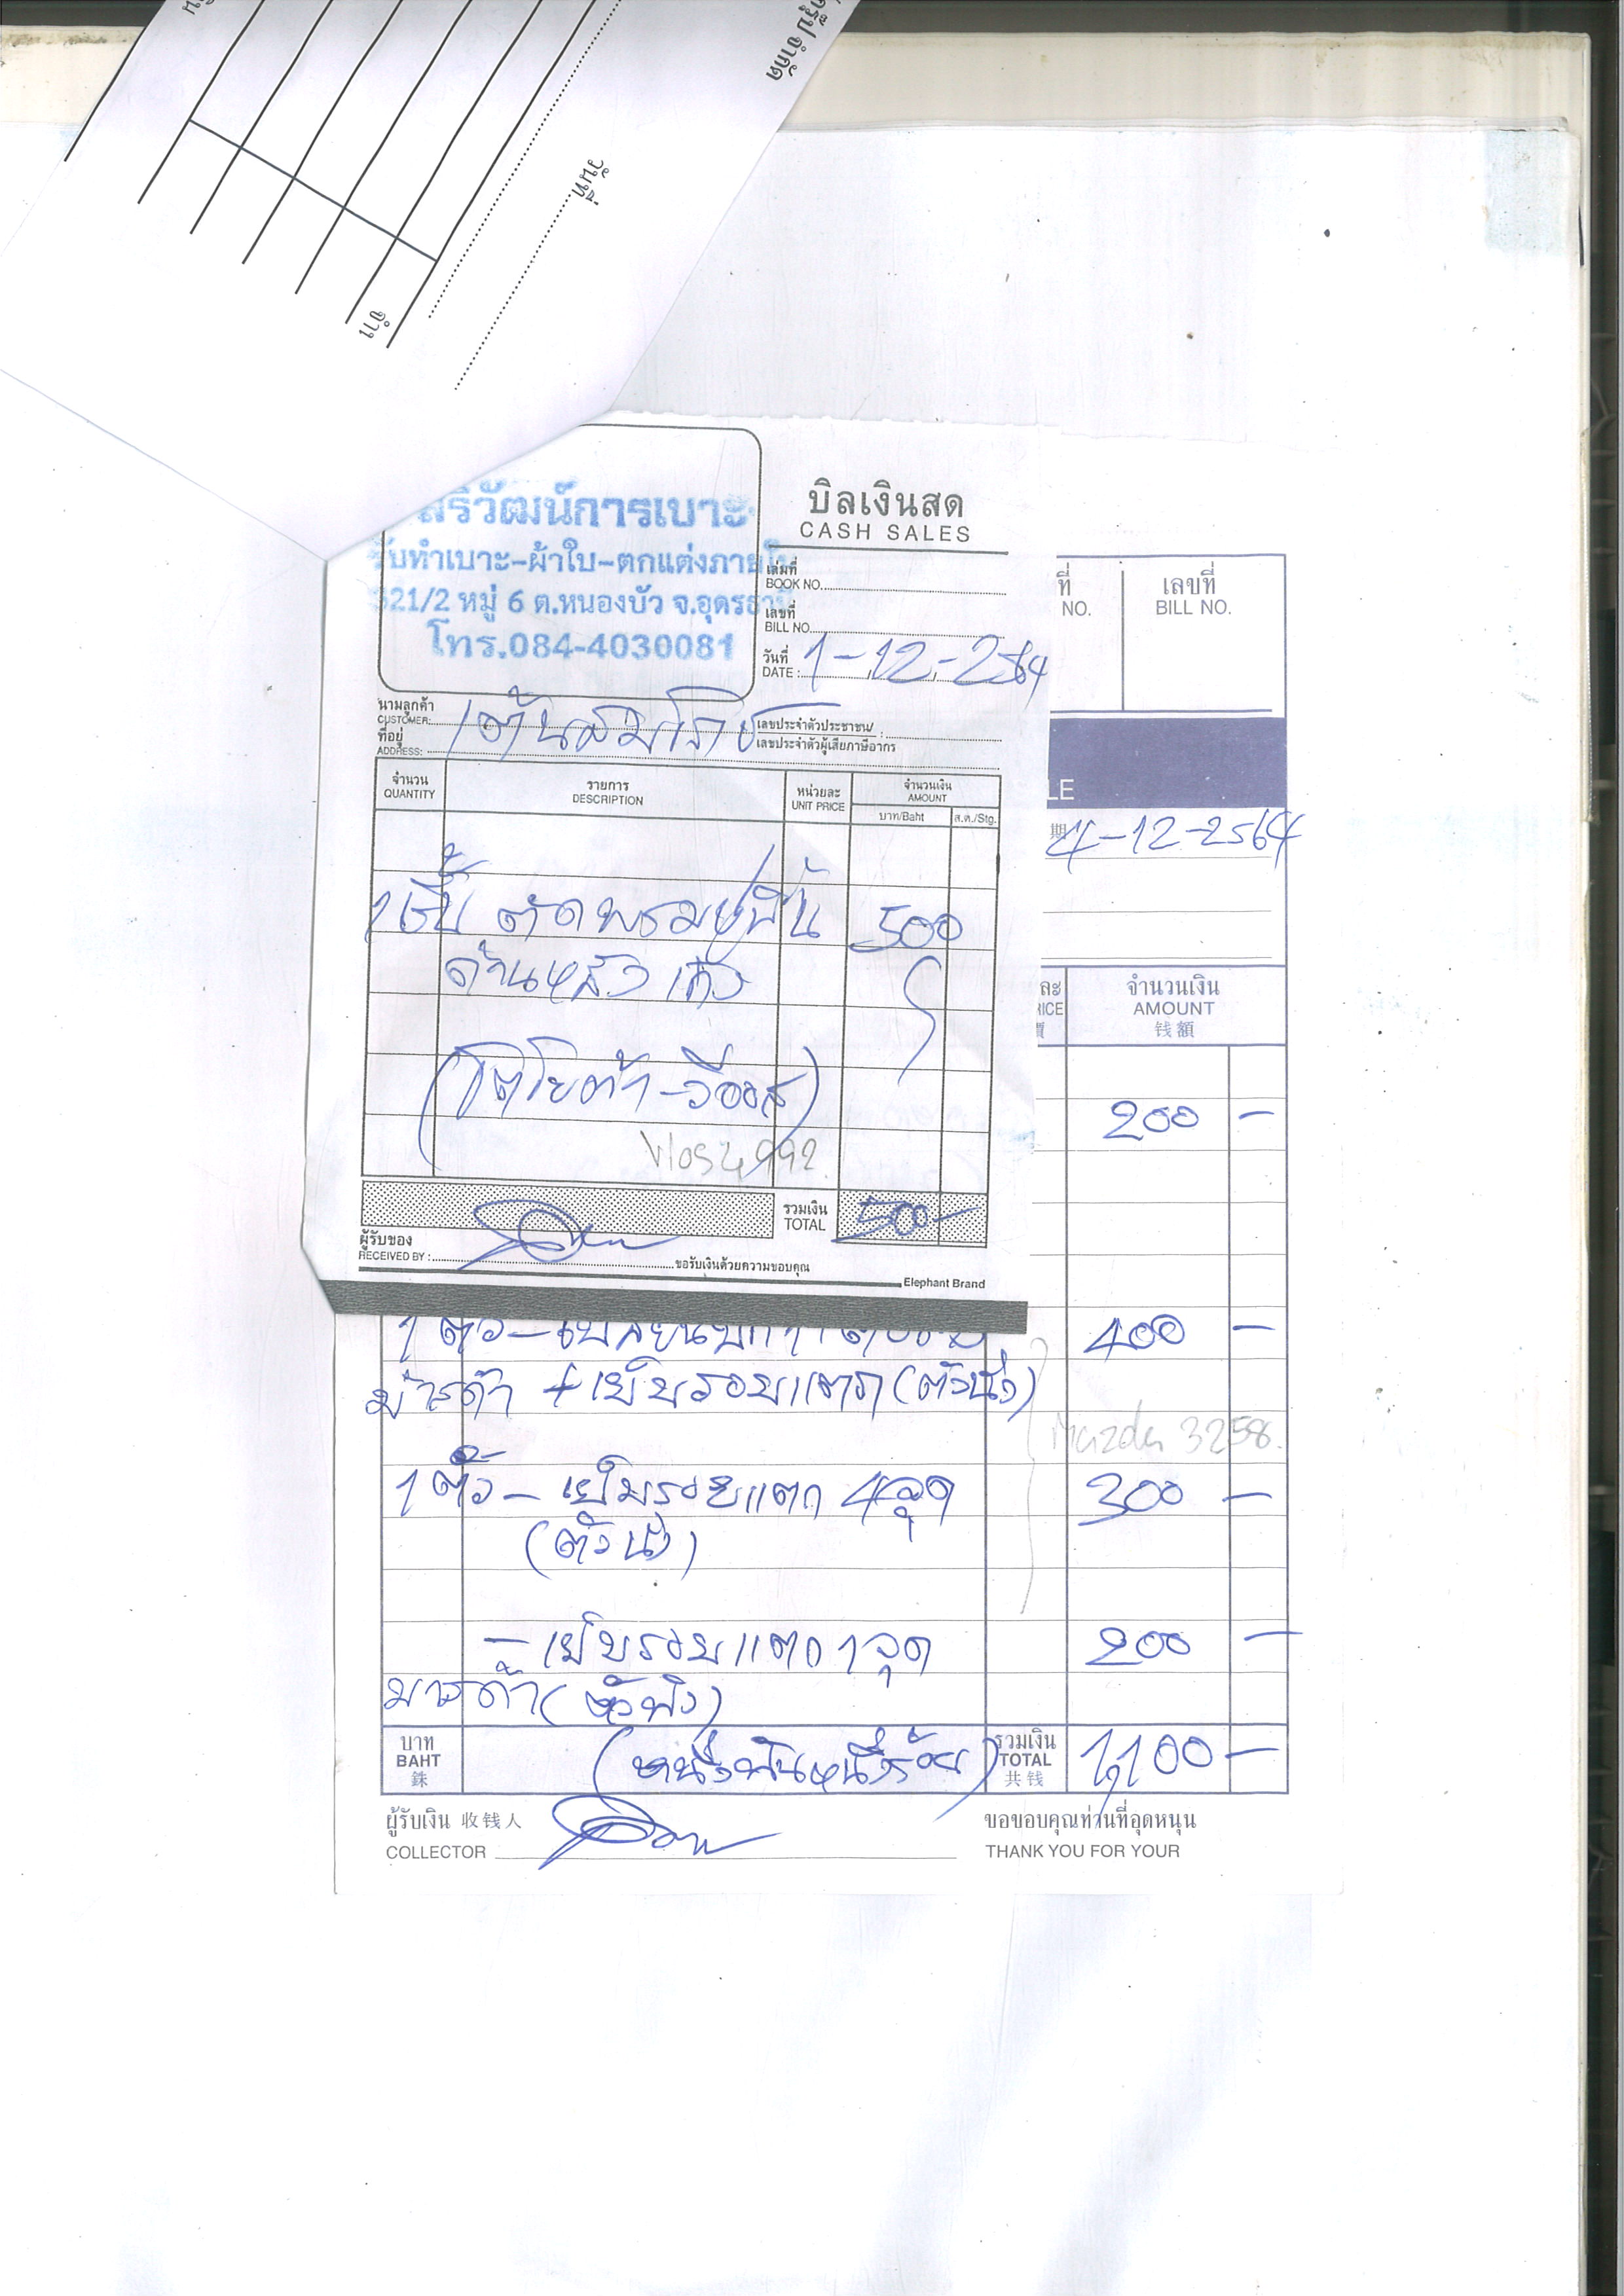 รุ๊ป จำกัด
วันที่
จำน
สริวัฒน์การเบาะ
รับทำเบาะ-ผ้าใบ-ตกแต่งภายใน
521/2 หมู่ 6 ต.หนองบัว จ.อุดรธานี
โทร.084-4030081
บิลเงินสด
CASH SALES
เล่มที่
BOOK NO.
เลขที่
BILL NO.
วันที่
DATE : 1-12-2564
นามลูกค้า
CUSTOMER:
ที่อยู่
ADDRESS:
เลขประจำตัวประชาชน/
เลขประจำตัวผู้เสียภาษีอากร
จำนวน
QUANTITY
รายการ
DESCRIPTION
หน่วยละ
UNIT PRICE
จำนวนเงิน
AMOUNT
บาท/Baht ส.ต./Stg.
ตัดพรมปูพื้น 500
ด้านหลัง เก๋ง
(โตโยต้า-วีออส)
Vios 4992
รวมเงิน
TOTAL 500-
ผู้รับของ
RECEIVED BY :
ขอรับเงินด้วยความขอบคุณ
Elephant Brand
ที่
NO.
เลขที่
BILL NO.
LE
期 4-12-2564
ละ
RICE
จำนวนเงิน
AMOUNT
钱額
200 -
1 ตัว - 400 -
มาสด้า + เย็บรอยแตก (ตัวนั่ง)
Mazda 3258.
1 ตัว - เย็บรอยแตก 4 จุด 300 -
(ตัวนั่ง)
- เย็บรอยแตก 1 จุด 200 -
มาสด้า (ตัวพิง)
บาท
BAHT
銖
(หนึ่งพันหนึ่งร้อย)
รวมเงิน
TOTAL
共钱
1,100 -
ผู้รับเงิน 收钱人
COLLECTOR
ขอขอบคุณท่านที่อุดหนุน
THANK YOU FOR YOUR